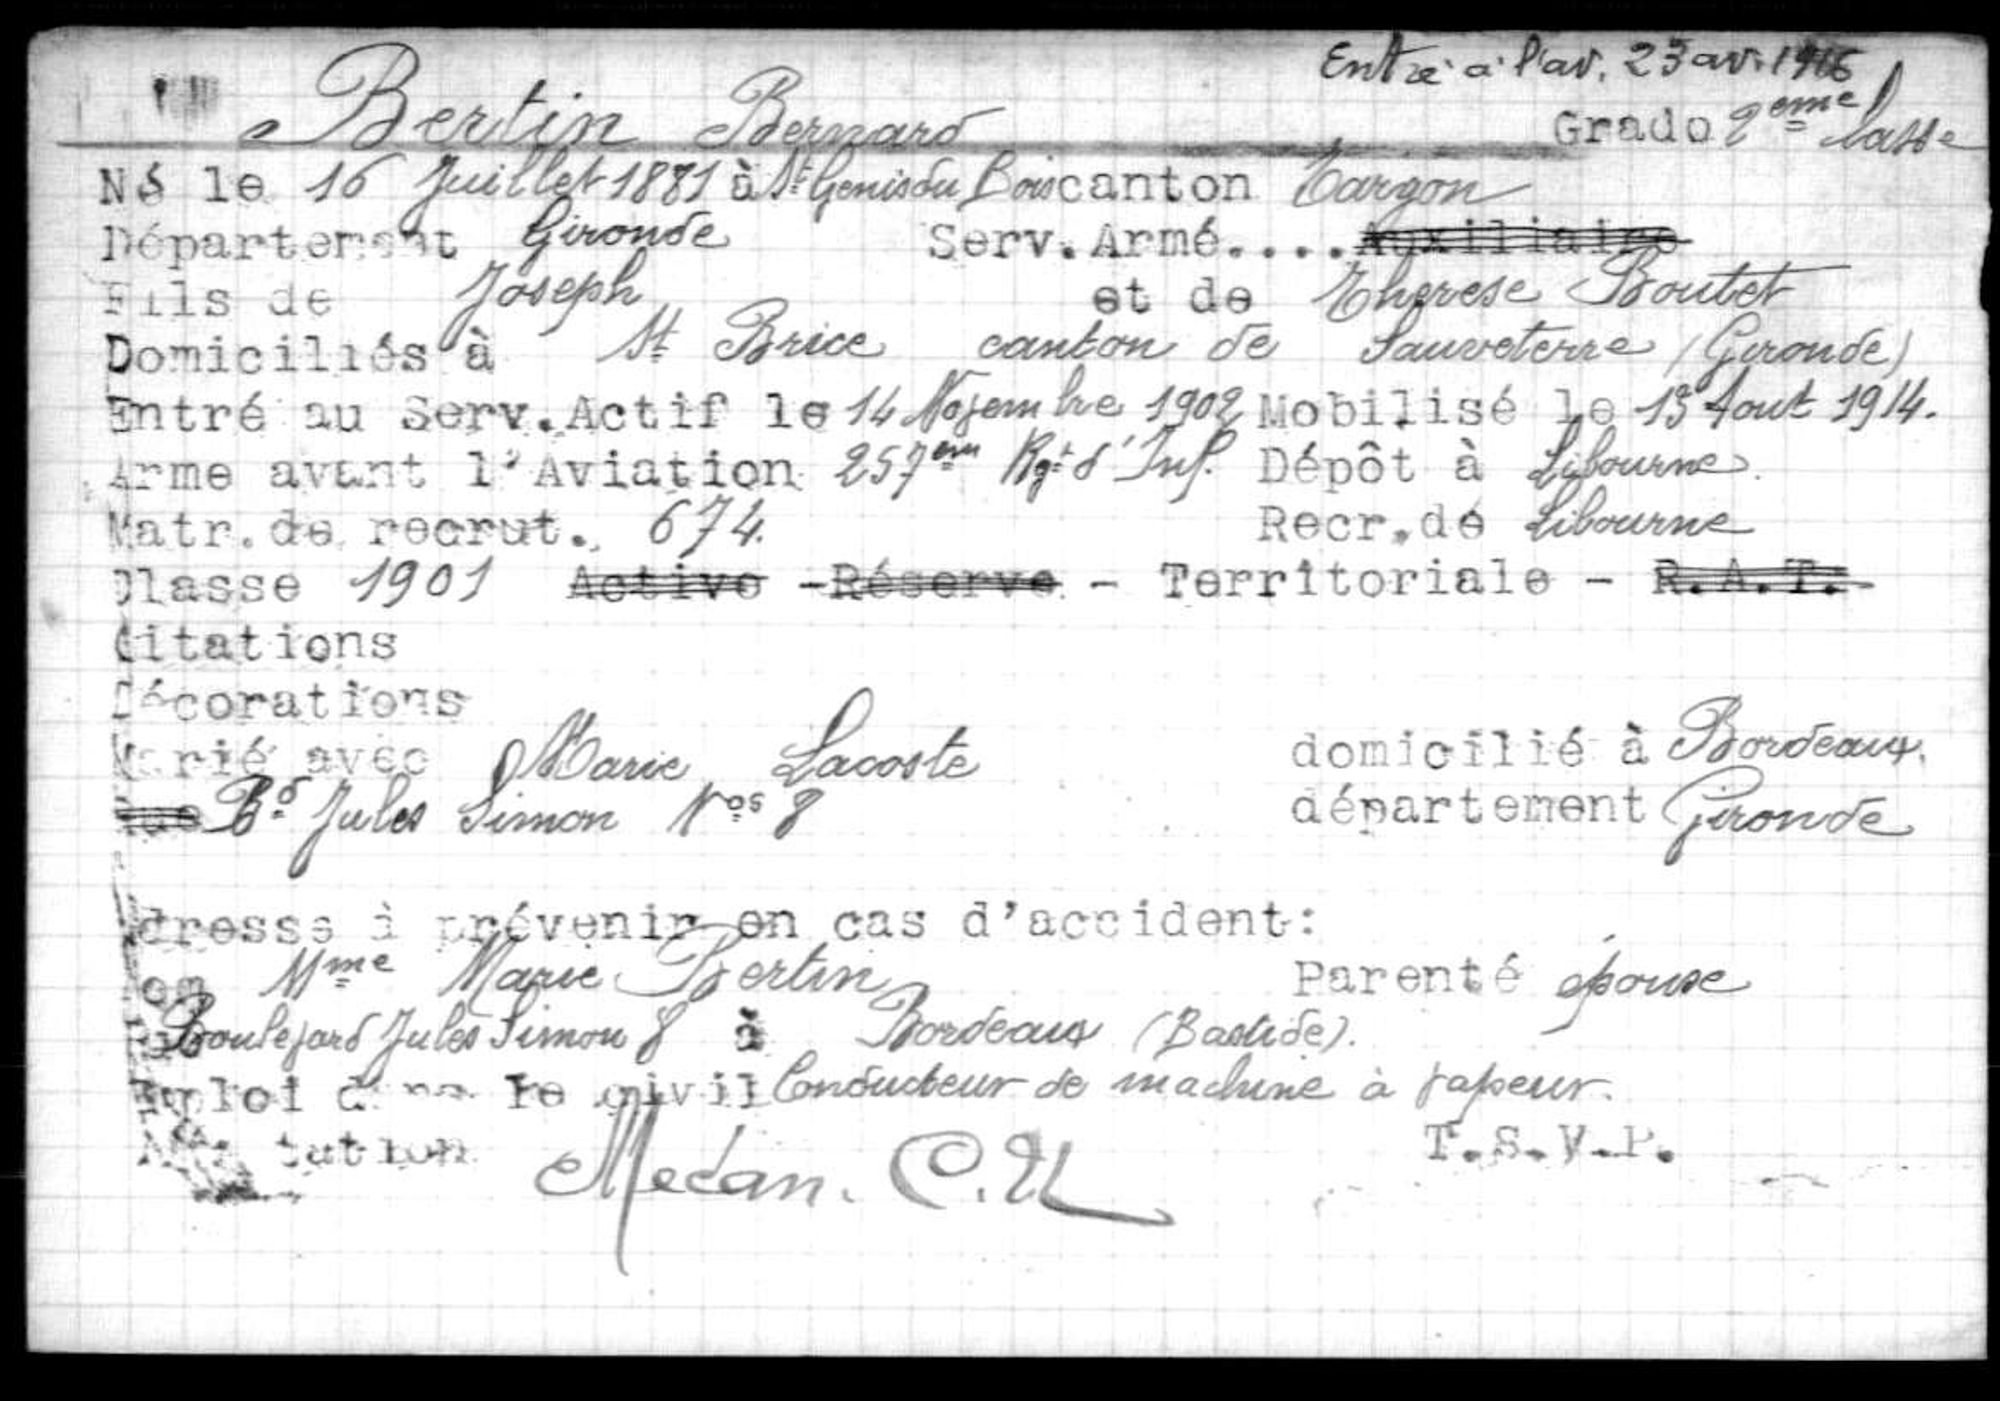 Entré à l'av. 23 av. 1916
Bertin Bernard Grade 2eme Classe
Né le 16 Juillet 1881 à St Genis du Bois canton Targon
Département Gironde Serv. Armé.... Auxiliaire
Fils de Joseph et de Therese Boutet
Domiciliés à St Brice canton de Sauveterre (Gironde)
Entré au Serv. Actif le 14 Novembre 1902 Mobilisé le 13 Aout 1914.
Arme avant l'Aviation 257em Rgt d'Inf. Dépôt à Libourne.
Matr. de recrut. 674. Recr. de Libourne
Classe 1901 Active - Réserve - Territoriale - R.A.T.
Citations
Décorations
Marié avec Marie Lacoste domicilié à Bordeaux.
Rue Bd Jules Simon Nos 8 département Gironde
Adresse à prévenir en cas d'accident:
Mme Marie Bertin Parenté épouse
Boulevard Jules Simon 8 à Bordeaux (Bastide).
Emploi dans le civil Conducteur de machine à vapeur.
T.S.V.P.